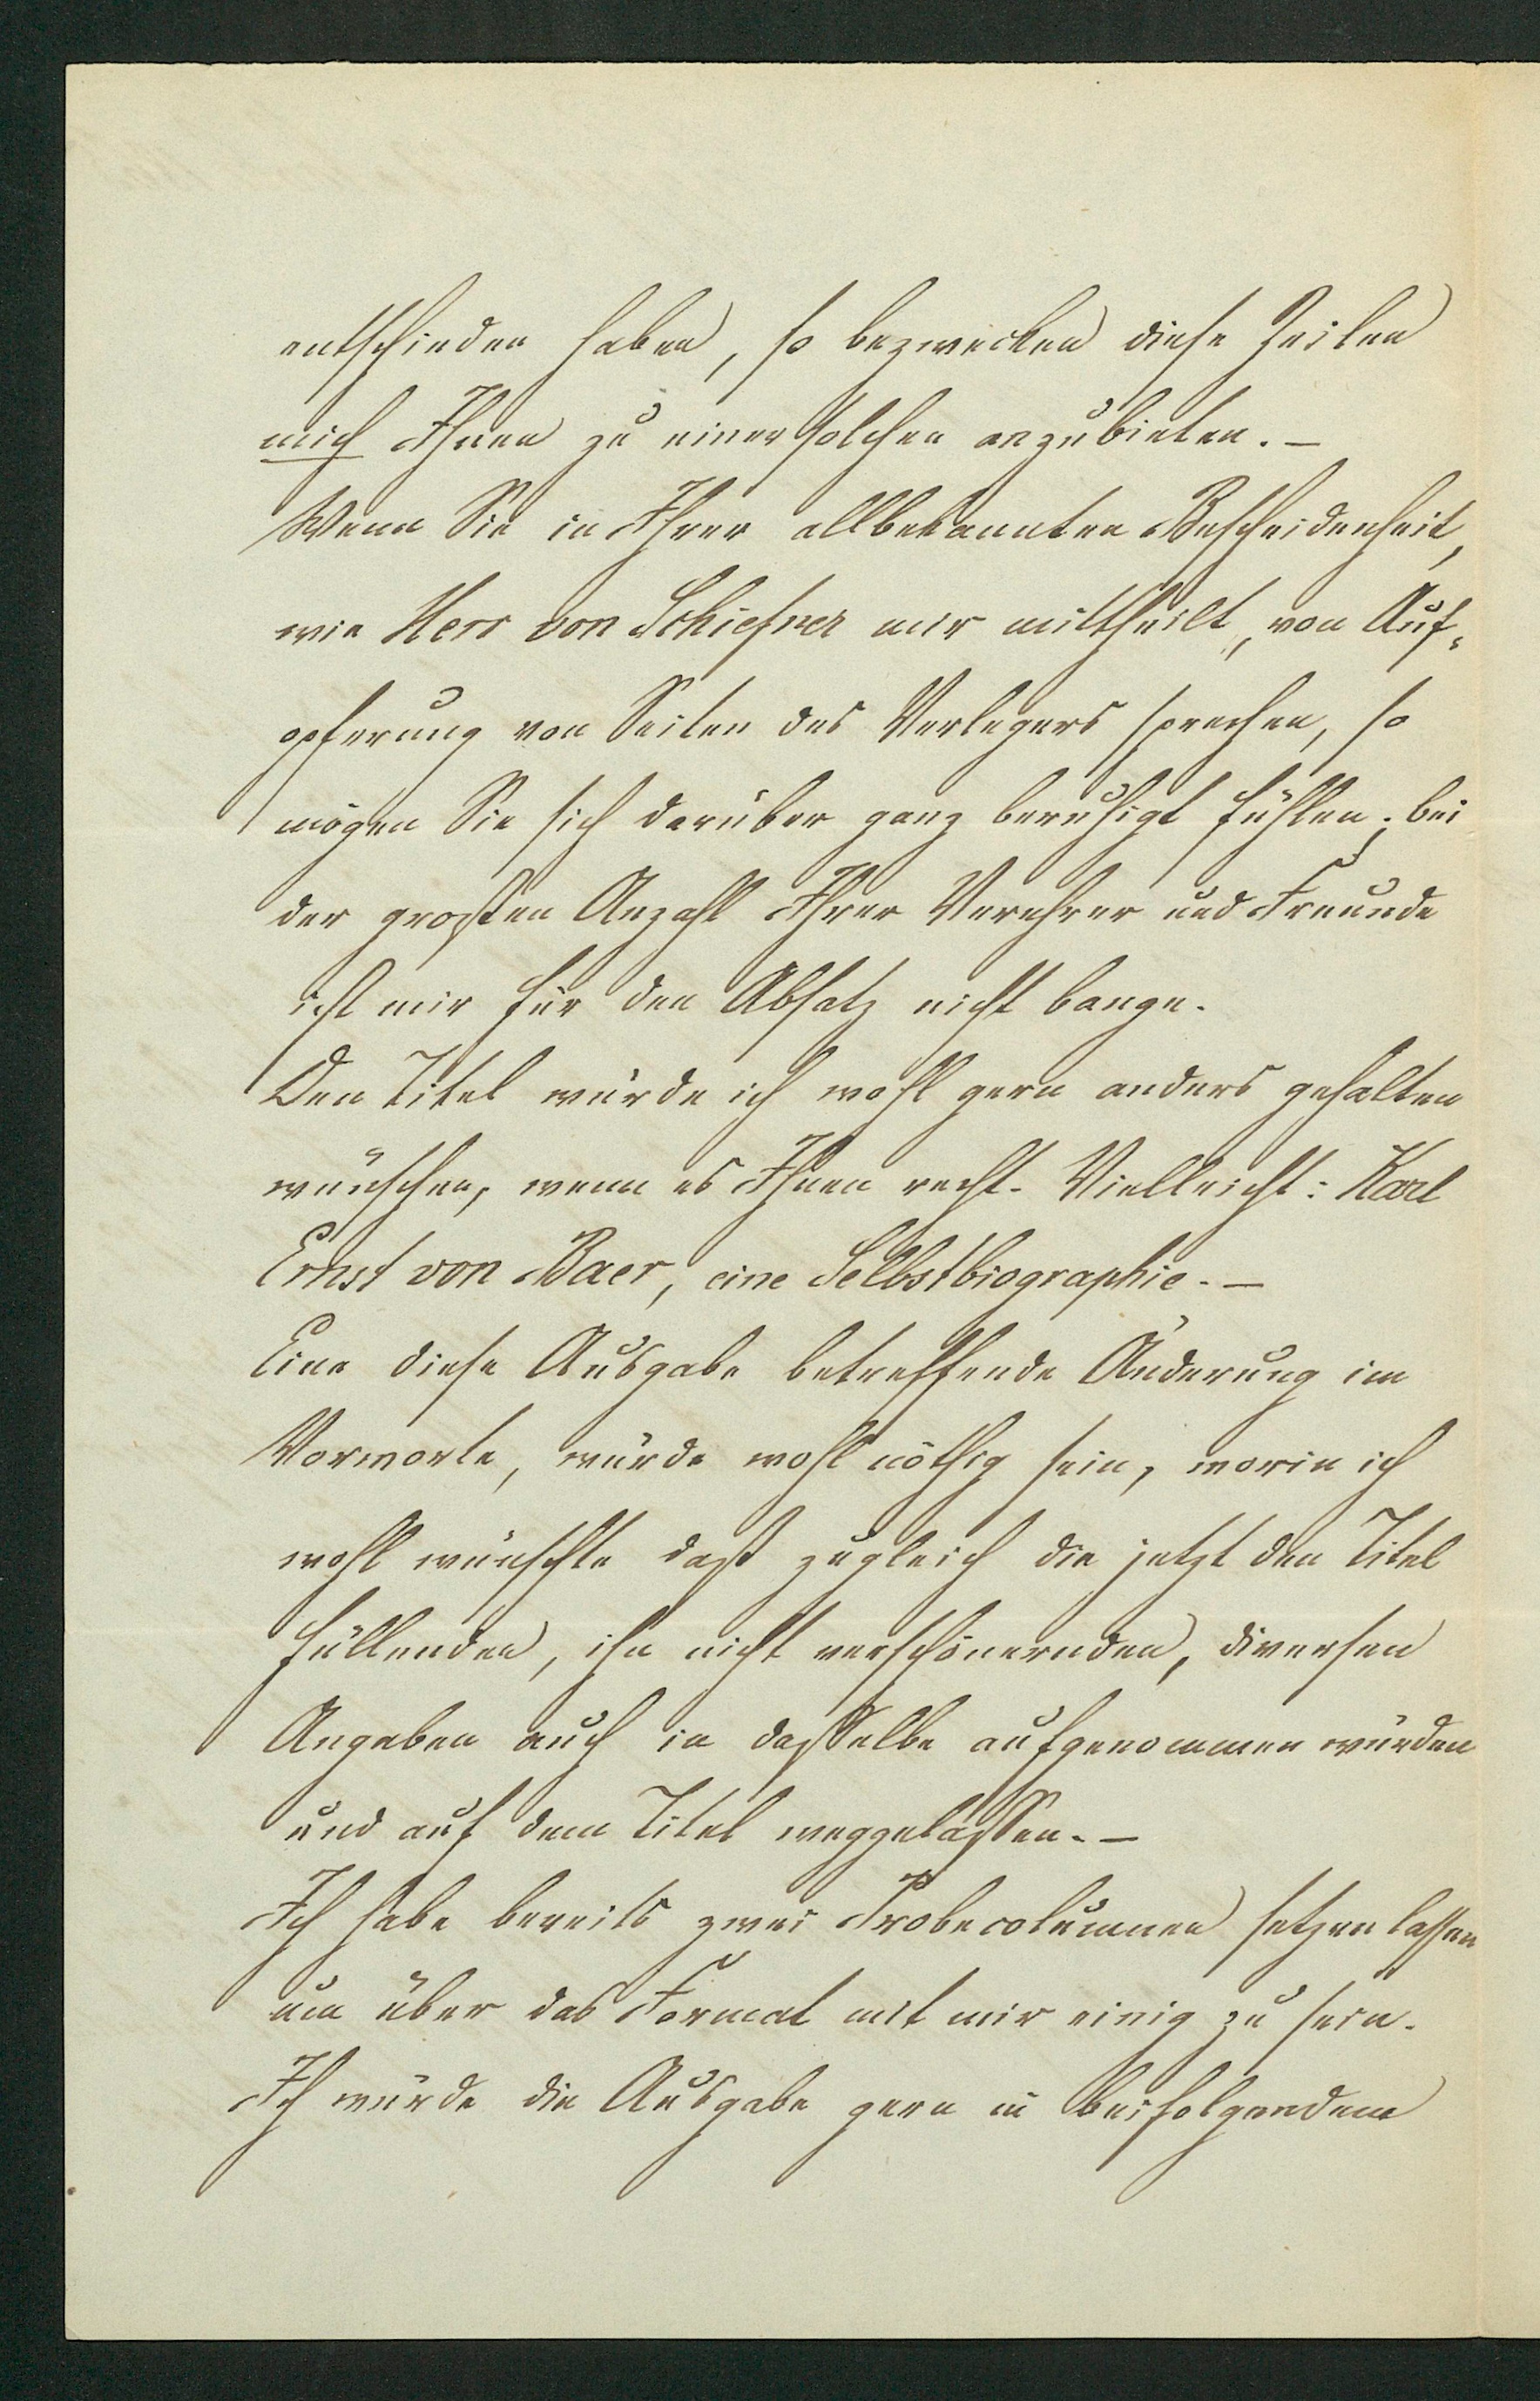 entschieden haben, so bezwecken diese Zeilen
mich Ihnen zu einer solchen anzubieten. –
Wenn Sie in Ihrer allbekannten Bescheidenheit,
wie Herr von Schiefner mir mittheilt, von Auf-
opferung von Seiten des Verlegers sprechen, so
mögen Sie sich darüber ganz beruhigt fühlen; bei
der großen Anzahl Ihrer Verehrer und Freunde
ist mir für den Absatz nicht bange.
Den Titel würde ich wohl gern anders gehalten
wünschen, wenn es Ihnen recht. Vielleicht: Karl
Ernst von Baer, eine Selbstbiographie. –
Eine diese Ausgabe betreffende Änderung im
Vorworte, würde wohl nöthig sein, worin ich
wohl wünschte daß zugleich die jetzt den Titel
füllenden, ihn nicht verschönernden, diversen
Angaben auch in dasselbe aufgenommen würden
und auf dem Titel weggelassen. –
Ich habe bereits zwei Probecolumnen setzen lassen
um über das Format mit mir einig zu sein.
Ich würde die Ausgabe gern in beifolgendem